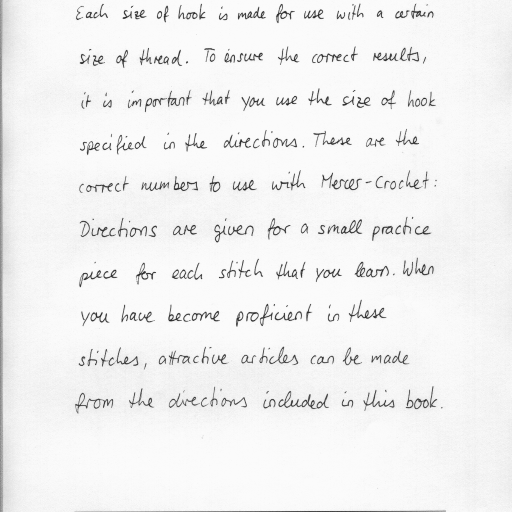 Each size of hook is made for use with a certain
size of thread. To ensure the correct results,
it is important that you use the size of hook
specified in the directions. These are the
correct numbers to use with Mercer-Crochet:
Directions are given for a small practice
piece for each stitch that you learn. When
you have become proficient in these
stitches, attractive articles can be made
from the directions included in this book.